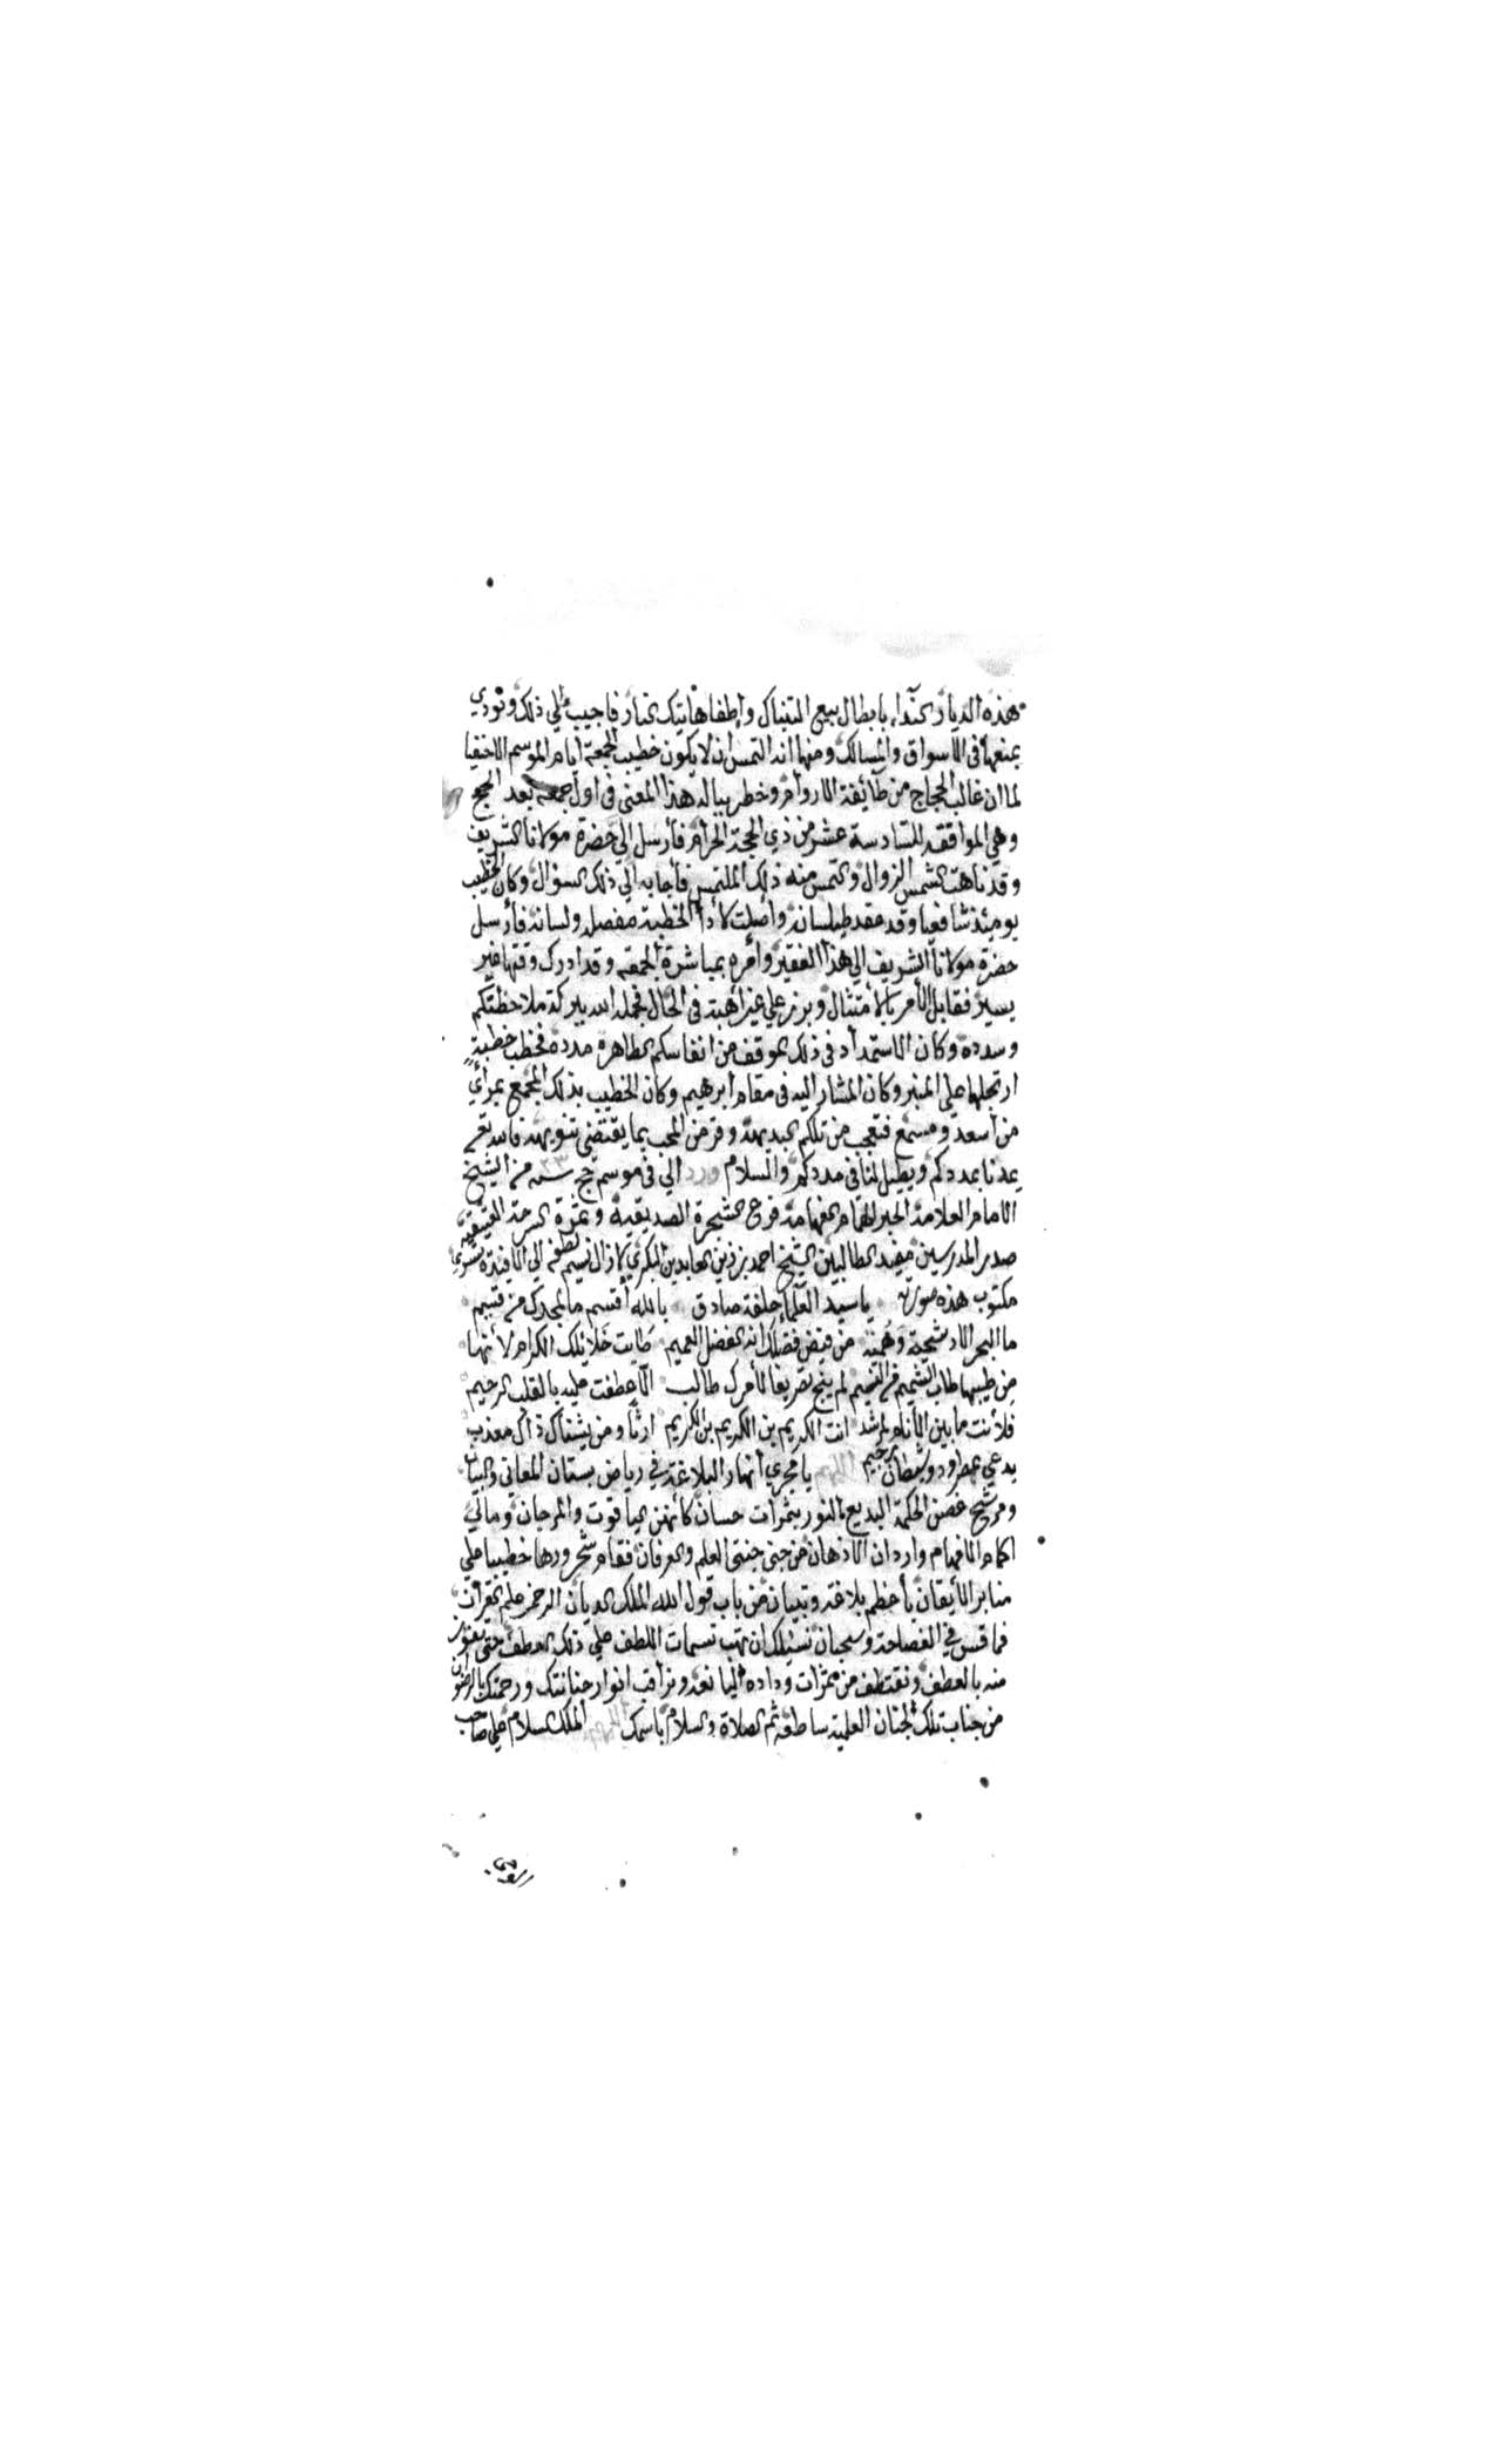 هذه الديار النداء بابطال بيع التنباك واطفا هاتيك النار فاجيب الي ذلك ونودي
بمنعها في الاسواق والمسالك ومنها انه التمس ان لا يكون خطيب الجمعة ايام الموسم الا حنفيا
لما ان غالب الحجاج من طائفة الاروام وخطر بباله هذا المعنى في اول جمعة بعد الحج
وهي الموافقة للسادسة عشر من ذي الحجة الحرام فأرسل الي حضرة مولانا الشريف
وقد ناهت الشمس الزوال والتمس منه ذلك الملتمس فأجابه الي ذلك السؤال وكان الخطيب
يومئذ شافعيا وقد عقد طيلسانه وأصلت لأداء الخطبة مفصله ولسانه فأرسل
حضرة مولانا الشريف الي هذا الفقير وأمره بمباشرة الجمعة وقد ادرك وقتها غير
يسير فقابل الأمر بالأمتثال وبرز علي غير أهبة في الحال فجمله الله ببركة ملاحظتكم
وسدده وكان الاستمداد في ذلك الموقف من انفاسكم الطاهرة مدده فخطب خطبة
ارتجلها على المنبر وكان المشار اليه في مقام ابرهيم وكان الخطيب بذلك المجمع بمرأي
من أسعد ومسمع فتعجب من تلكم البديهة وقر من المحب بما يقتضي تنويهه فالله تع
يمدنا بمددكم ويطيل لنا في مددكم والسلام ورد الي في موسم حج سنه من الشيخ
الامام العلامة الحبر الهمام الفهامة فرع الشجرة الصديقية وثمرة السرحة العتيقيه
صدر المدرسين مفيد الطالبين الشيخ احمد بن زين العابدين البكري لا زال نسيم لطفه الي الافئدة
مكتوب هذه صورته يا سيد العلماء حلفة صادق بالله أقسم ما لمجدك من قسيم
ما البحر الا رشحة وهمية من فيض فضلك انه الفضل العميم طابت خلائقك الكرام لأنها
من طيبها طاب الشميم من النسيم لم ينح تصريفا لأمرك طالب الا عطفت عليه بالقلب الرحيم
فلأنت ما بين الأنام لمرشد انت الكريم بن الكريم بن الكريم ارثا ومن يشناك ذاك معذب
يدعي بمطرود وشيطان رجيم يا مجري أنهار البلاغة في رياض بستان المعاني والبيان
ومرشح غصن الحكمة البديع النور بثمرات حسان كأنهن الياقوت والمرجان ومالئ
اكمام الافهام واردان الاذهان من جنى جنتي العلم والعرفان فقام شحرورها خطيبا علي
منابر الأيقان بأعظم بلاغة وتبيان من باب قول الله الملك الديان الرحمن علم القرآن
فما قس في الفصاحة وسحبان نسئلك ان تهب نسمات اللطف علي ذلك العطف حتى نفوز
منه بالعطف ونقتطف من ثمرات وداده اليانعة ونراقب انوار حنانتك ورحمتك بالرضوان
من جناب تلك الجنان العلية ساطعة ثم الصلاة والسلام باسمك الملك السلام علي صاحب